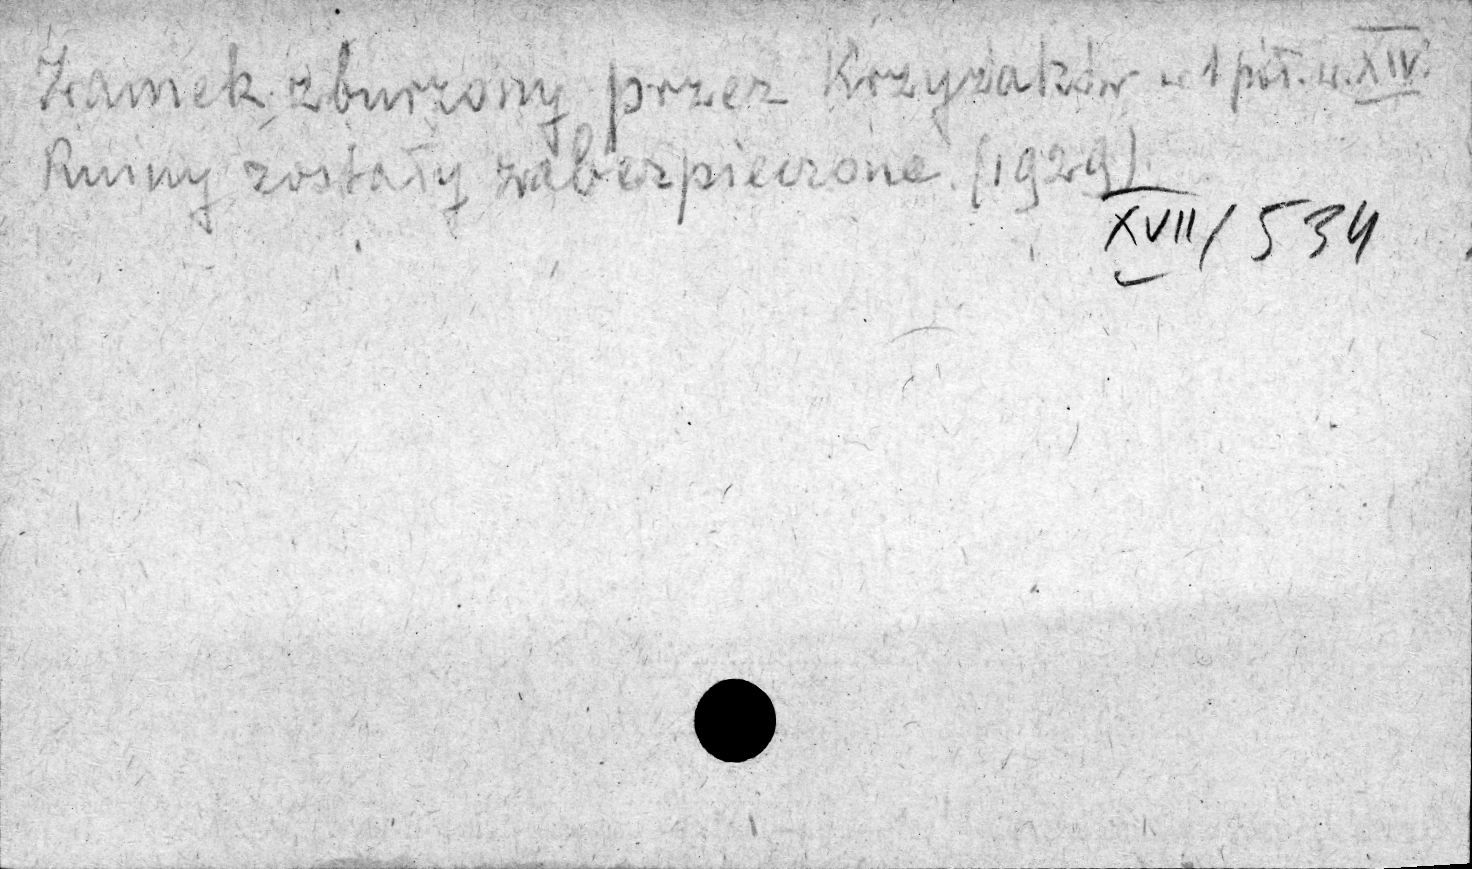 Zamek zburzony przez Krzyżaków w 1 poł. w. XIV.
Ruiny zostały zabezpieczone. (1929).
XVII/534